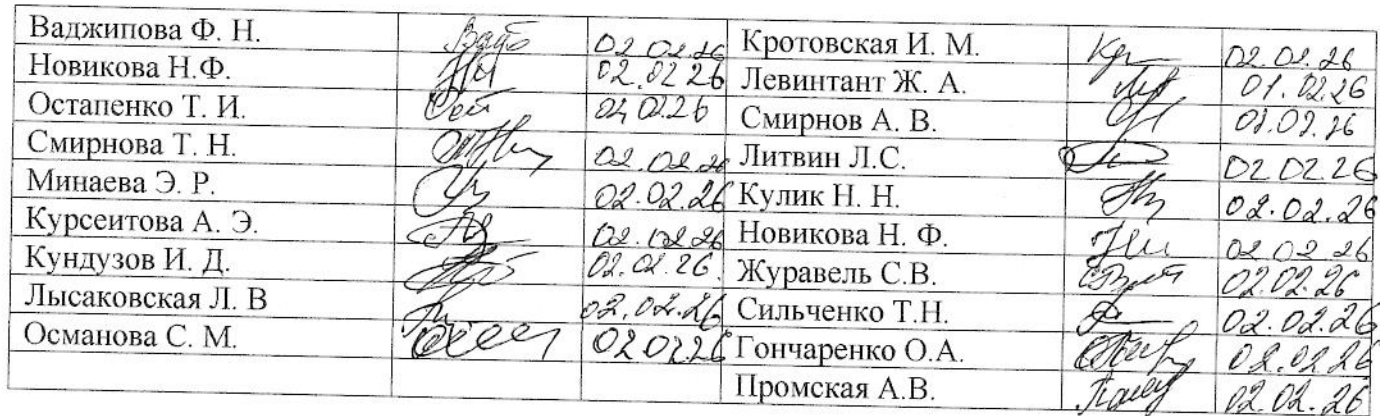 Ваджипова Ф. Н. 02.02.26 Кротовская И. М. 02.02.26
Новикова Н.Ф. 02.02.26 Левинтант Ж. А. 01.02.26
Остапенко Т. И. 02.02.26 Смирнов А. В. 02.02.26
Смирнова Т. Н. 02.02.26 Литвин Л.С. 02 02 26
Минаева Э. Р. 02.02.26 Кулик Н. Н. 02.02.26
Курсеитова А. Э. 02.02.26 Новикова Н. Ф. 02 02 26
Кундузов И. Д. 02.02.26. Журавель С.В. 02.02.26
Лысаковская Л. В 02.02.26 Сильченко Т.Н. 02.02.26
Османова С. М. 02.02.26 Гончаренко О.А. 02.02.26
Промская А.В. 02.02.26